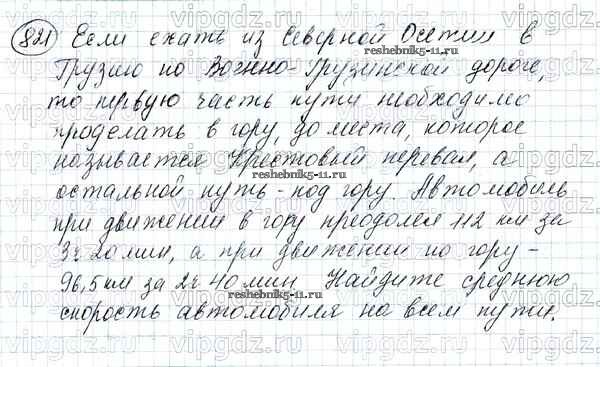 821 Если ехать из Северной Осетии в
Грузию по Военно-Грузинской дороге,
то первую часть пути необходимо
проделать в гору, до места, которое
называется Крестовый перевал, а
остальной путь - под гору. Автомобиль
при движении в гору преодолел 112 км за
3ч 20 мин, а при движении по гору -
96,5 км за 2ч 40 мин Найдите среднюю
скорость автомобиля на всем пути.
reshebnik5-11.ru
reshebnik5-11.ru
reshebnik5-11.ru
vipgdz.ru